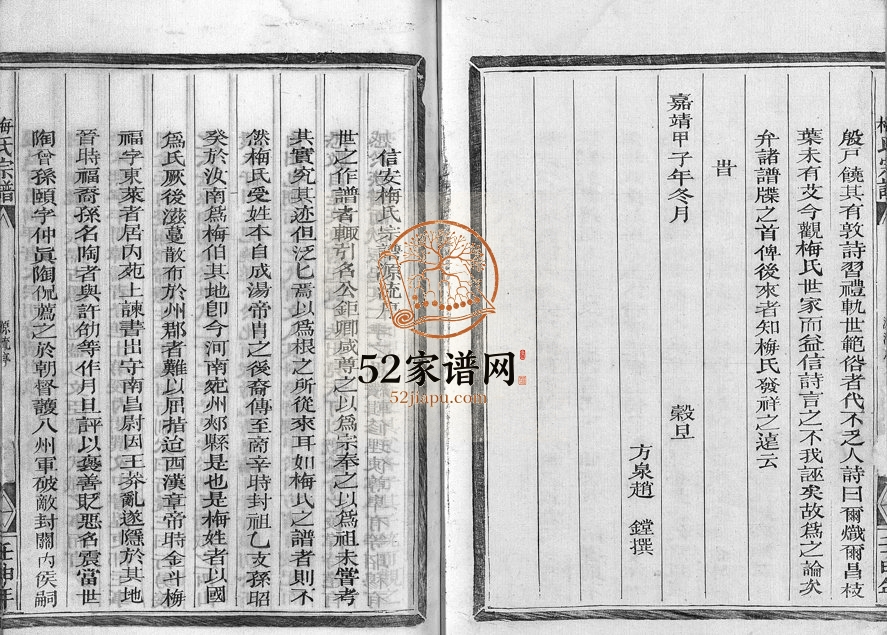 殷戶饒其有敦詩習禮軌世範俗者代不乏人詩曰爾熾爾昌枝
葉未有艾今觀梅氏世家而益信詩言之不我誣矣故為之論次
弁諸譜牒之首俾後來者知梅氏發祥之遠云
旹
嘉靖甲子年冬月 穀旦
方泉趙 鏜撰
信安梅氏宗譜源流序
世之作譜者輒引名公鉅卿咸尊之以為宗奉之以為祖未嘗考
其實究其迹但泛匕焉以為根之所從來耳如梅氏之譜者則不
然梅氏受姓本自成湯帝肖之後裔傳至商辛時封祖乙支孫昭
癸於汝南為梅伯其地卽今河南宛州郟縣是也是梅姓者以國
為氏厥後滋蔓散布於州郡者難以屈指迨西漢章帝時金斗梅
福字東萊者居内苑上諫書出守南昌尉因王莽亂遂隱於其地
晉時福裔孫名陶者與許劭等作月旦評以褒善貶惡名震當世
陶曾孫頤字仲眞陶侃薦之於朝督護八州軍破敵封關内侯嗣
梅氏宗譜
源流序
一
壬申年
52家谱网
52jiapu.com